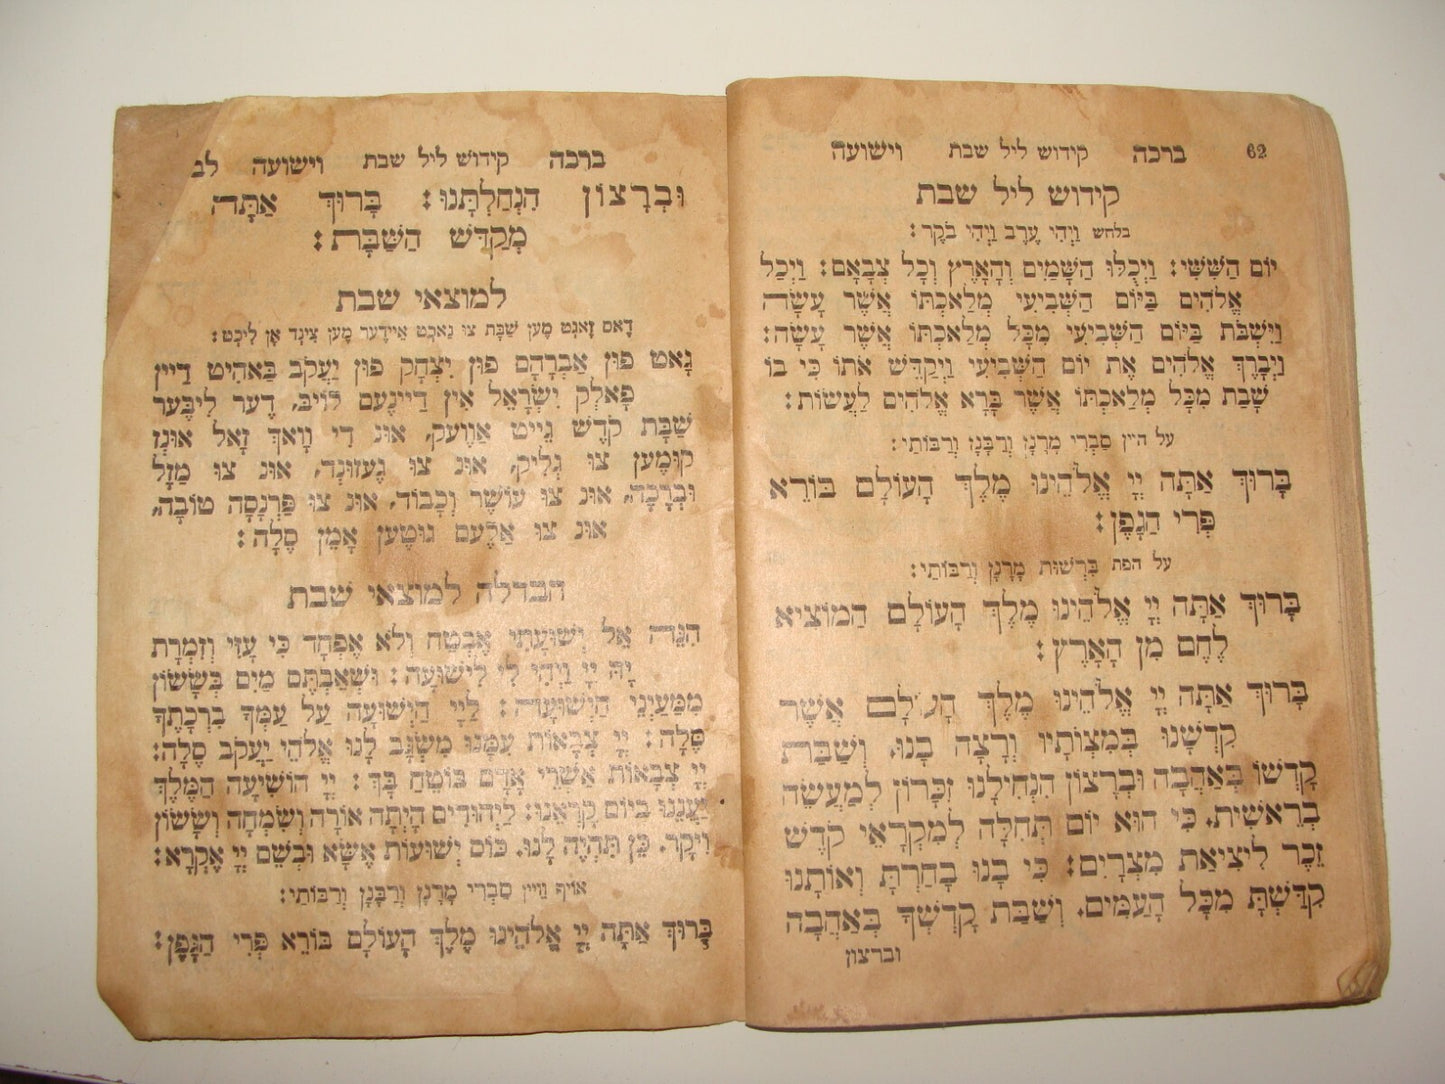 62 ברכה קידוש ליל שבת וישועה
קידוש ליל שבת
בלחש וַיְהִי עֶרֶב וַיְהִי בֹקֶר:
יוֹם הַשִּׁשִּׁי: וַיְכֻלּוּ הַשָּׁמַיִם וְהָאָרֶץ וְכָל צְבָאָם: וַיְכַל
אֱלֹהִים בַּיּוֹם הַשְּׁבִיעִי מְלַאכְתּוֹ אֲשֶׁר עָשָׂה
וַיִּשְׁבֹּת בַּיּוֹם הַשְּׁבִיעִי מִכָּל מְלַאכְתּוֹ אֲשֶׁר עָשָׂה:
וַיְבָרֶךְ אֱלֹהִים אֶת יוֹם הַשְּׁבִיעִי וַיְקַדֵּשׁ אֹתוֹ כִּי בוֹ
שָׁבַת מִכָּל מְלַאכְתּוֹ אֲשֶׁר בָּרָא אֱלֹהִים לַעֲשׂוֹת:
על היין סַבְרִי מָרָנָן וְרַבָּנָן וְרַבּוֹתַי:
בָּרוּךְ אַתָּה יְיָ אֱלֹהֵינוּ מֶלֶךְ הָעוֹלָם בּוֹרֵא
פְּרִי הַגָּפֶן:
על הפת בִּרְשׁוּת מָרָנָן וְרַבּוֹתַי:
בָּרוּךְ אַתָּה יְיָ אֱלֹהֵינוּ מֶלֶךְ הָעוֹלָם הַמּוֹצִיא
לֶחֶם מִן הָאָרֶץ:
בָּרוּךְ אַתָּה יְיָ אֱלֹהֵינוּ מֶלֶךְ הָעוֹלָם אֲשֶׁר
קִדְּשָׁנוּ בְּמִצְוֹתָיו וְרָצָה בָנוּ. וְשַׁבַּת
קָדְשׁוֹ בְּאַהֲבָה וּבְרָצוֹן הִנְחִילָנוּ זִכָּרוֹן לְמַעֲשֵׂה
בְרֵאשִׁית. כִּי הוּא יוֹם תְּחִלָּה לְמִקְרָאֵי קֹדֶשׁ
זֵכֶר לִיצִיאַת מִצְרָיִם: כִּי בָנוּ בָחַרְתָּ וְאוֹתָנוּ
קִדַּשְׁתָּ מִכָּל הָעַמִּים. וְשַׁבַּת קָדְשְׁךָ בְּאַהֲבָה
וברצון
ברכה קידוש ליל שבת וישועה לב
וּבְרָצוֹן הִנְחַלְתָּנוּ: בָּרוּךְ אַתָּה
מְקַדֵּשׁ הַשַּׁבָּת:
למוצאי שבת
דָאס זָאגְט מֶען שַׁבָּת צוּ נַאכְט אֵיידֶער מֶען צִינְד אָן לִיכְט:
גָאט פוּן אַבְרָהָם פוּן יִצְחָק פוּן יַעֲקֹב בַּאהִיט דַיין
פָאלְק יִשְׂרָאֵל אִין דַיינֶעם לוֹיבּ, דֶער לִיבֶּער
שַׁבָּת קֹדֶשׁ גֵייט אַוֶועק, אוּנ דִי וָואךְ זָאל אוּנְז
קוּמֶען צוּ גְלִיק, אוּנ צוּ גֶעזוּנְד, אוּנ צוּ מַזָל
וּבְרָכָה, אוּנ צוּ עוֹשֶׁר וְכָבוֹד, אוּנ צוּ פַּרְנָסָה טוֹבָה,
אוּנ צוּ אַלֶעם גוּטֶען אָמֵן סֶלָה:
הבדלה למוצאי שבת
הִנֵּה אֵל יְשׁוּעָתִי אֶבְטַח וְלֹא אֶפְחָד כִּי עָזִּי וְזִמְרָת
יָהּ יְיָ וַיְהִי לִי לִישׁוּעָה: וּשְׁאַבְתֶּם מַיִם בְּשָׂשׂוֹן
מִמַּעַיְנֵי הַיְשׁוּעָה: לַיְיָ הַיְשׁוּעָה עַל עַמְּךָ בִרְכָתֶךָ
סֶּלָה: יְיָ צְבָאוֹת עִמָּנוּ מִשְׂגָּב לָנוּ אֱלֹהֵי יַעֲקֹב סֶלָה:
יְיָ צְבָאוֹת אַשְׁרֵי אָדָם בּוֹטֵחַ בָּךְ: יְיָ הוֹשִׁיעָה הַמֶּלֶךְ
יַעֲנֵנוּ בְיוֹם קָרְאֵנוּ: לַיְּהוּדִים הָיְתָה אוֹרָה וְשִׂמְחָה וְשָׂשׂוֹן
וִיקָר. כֵּן תִּהְיֶה לָנוּ. כּוֹס יְשׁוּעוֹת אֶשָּׂא וּבְשֵׁם יְיָ אֶקְרָא:
אויף וויין סַבְרִי מָרָנָן וְרַבָּנָן וְרַבּוֹתַי:
בָּרוּךְ אַתָּה יְיָ אֱלֹהֵינוּ מֶלֶךְ הָעוֹלָם בּוֹרֵא פְּרִי הַגָּפֶן: